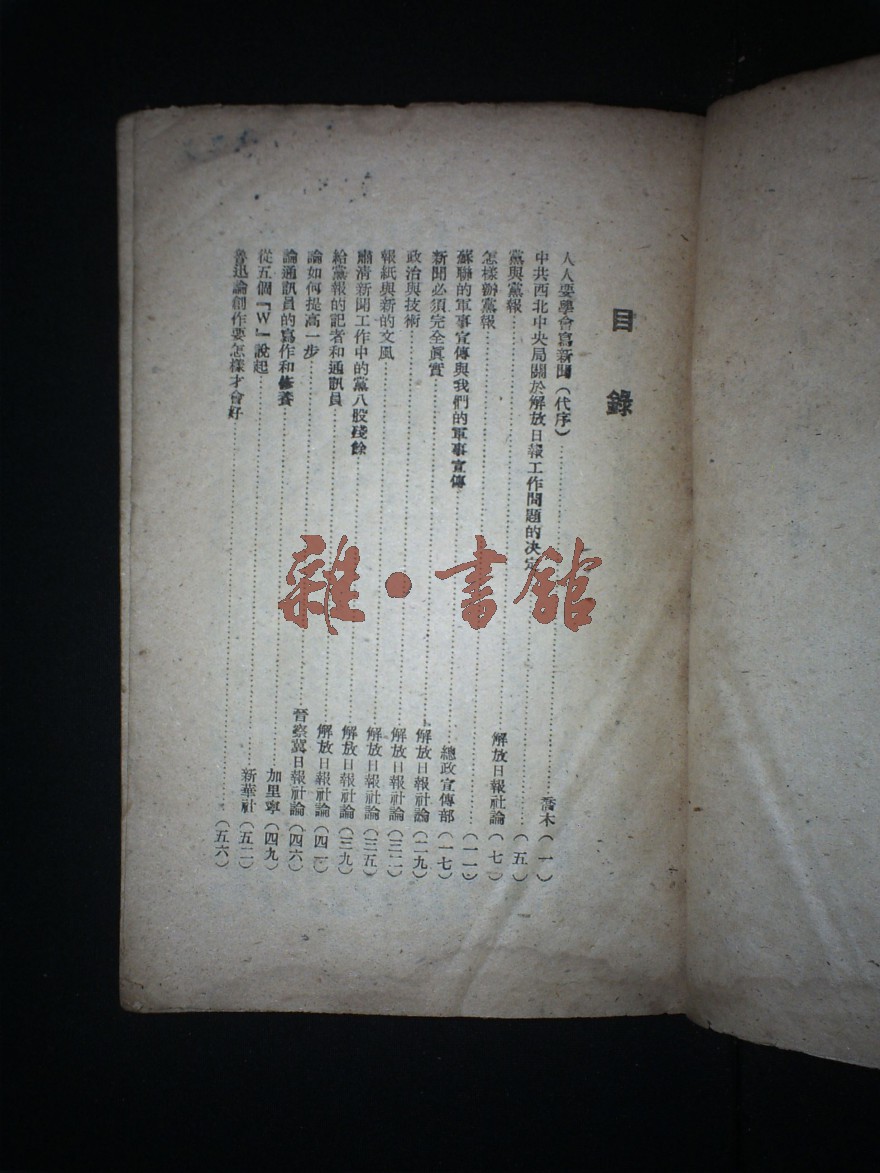 目錄
人人要學會寫新聞(代序)……喬木(一)
中共西北中央局關於解放日報工作問題的决定……(五)
黨與黨報……解放日報社論(七)
怎樣辦黨報……(一一)
蘇聯的軍事宣傳與我們的軍事宣傳……總政宣傳部(一七)
新聞必須完全眞實……解放日報社論(二九)
政治與技術……解放日報社論(三二)
報紙與新的文風……解放日報社論(三五)
肅清新聞工作中的黨八股殘餘……解放日報社論(三九)
給黨報的記者和通訊員……解放日報社論(四一)
論如何提高一步……晉察冀日報社論(四六)
論通訊員的寫作和修養……加里寧(四九)
從五個「W」說起……新華社(五二)
魯迅論創作要怎樣才會好……(五六)
雜·書館